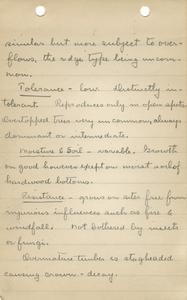 similar but more subject to over-
flows, the ridge type being uncom-
mon.
Tolerance - low. Distinctly in-
tolerant. Reproduces only in open spots.
Overtopped trees very uncommon, always
dominant or intermediate.
Moisture & Soil - variable. Growth
on good however except on moist soil of
hardwood bottoms.
Resistance - grows on sites free from
injurious influences such as fire &
windfall. Not bothered by insects
or fungi.
Overmature timber is stagheaded
causing crown - decay.